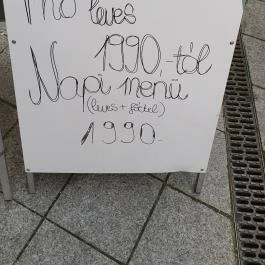 leves
1990,-tól
Napi menü
(leves + főétel)
1990.-